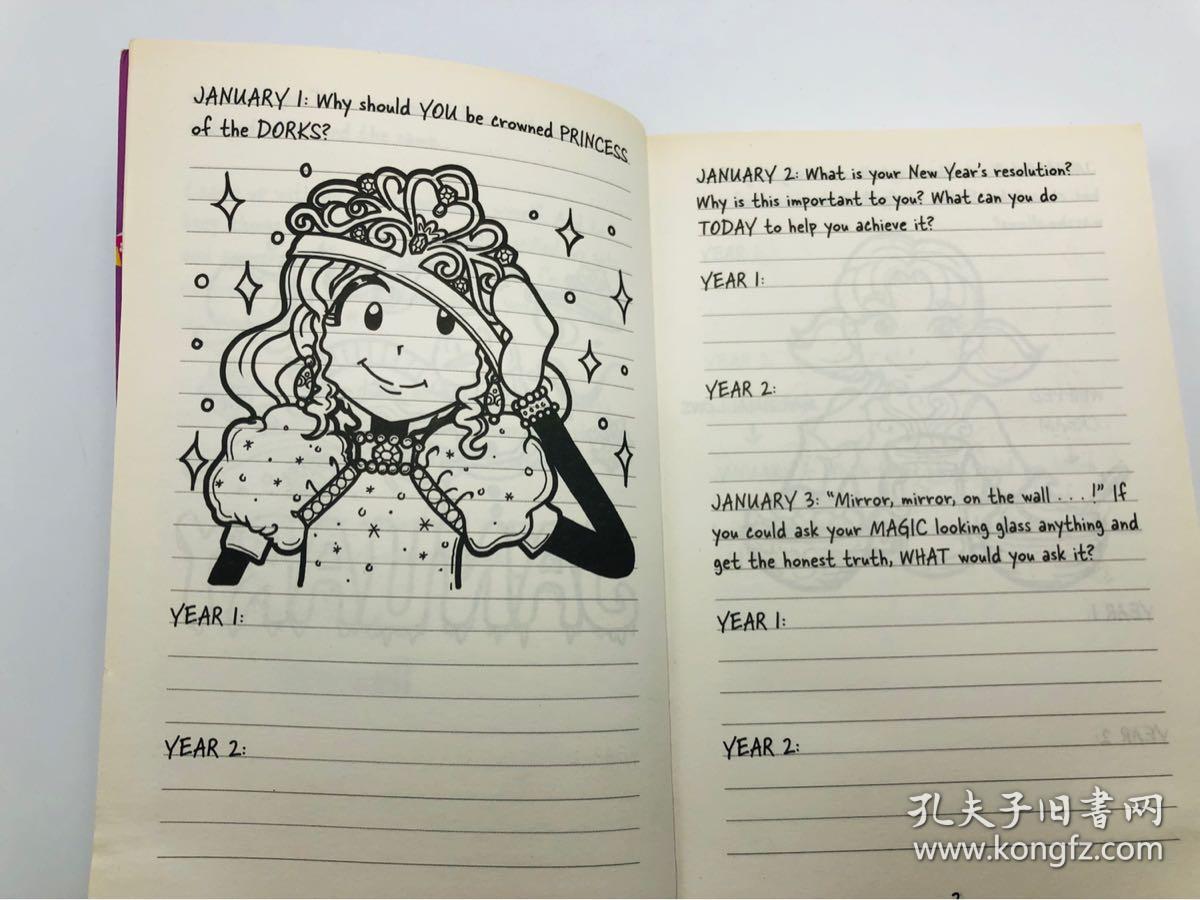 JANUARY 1: Why should YOU be crowned PRINCESS
of the DORKS?
YEAR 1:
YEAR 2:
JANUARY 2: What is your New Year's resolution?
Why is this important to you? What can you do
TODAY to help you achieve it?
YEAR 1:
YEAR 2:
JANUARY 3: “Mirror, mirror, on the wall . . .!” If
you could ask your MAGIC looking glass anything and
get the honest truth, WHAT would you ask it?
YEAR 1:
YEAR 2:
孔夫子旧书网
www.kongfz.com